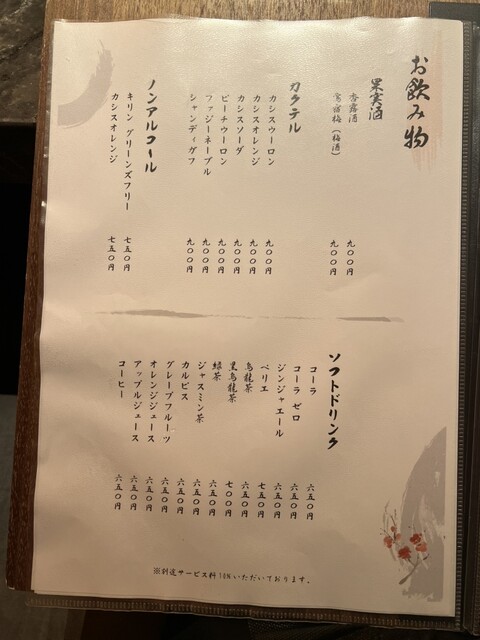 お飲み物
果実酒
杏露酒 九〇〇円
鶯宿梅（梅酒） 九〇〇円
カクテル
カシスウーロン 九〇〇円
カシスオレンジ 九〇〇円
カシスソーダ 九〇〇円
ピーチウーロン 九〇〇円
ファジーネーブル 九〇〇円
シャンディガフ 九〇〇円
ノンアルコール
キリン グリーンズフリー 七五〇円
カシスオレンジ 七五〇円
ソフトドリンク
コーラ 六五〇円
コーラ ゼロ 六五〇円
ジンジャエール 六五〇円
ペリエ 七五〇円
烏龍茶 六五〇円
黒烏龍茶 七〇〇円
緑茶 六五〇円
ジャスミン茶 六五〇円
カルピス 六五〇円
グレープフルーツ 六五〇円
オレンジジュース 六五〇円
アップルジュース 六五〇円
コーヒー 六五〇円
※別途サービス料10%いただいております。